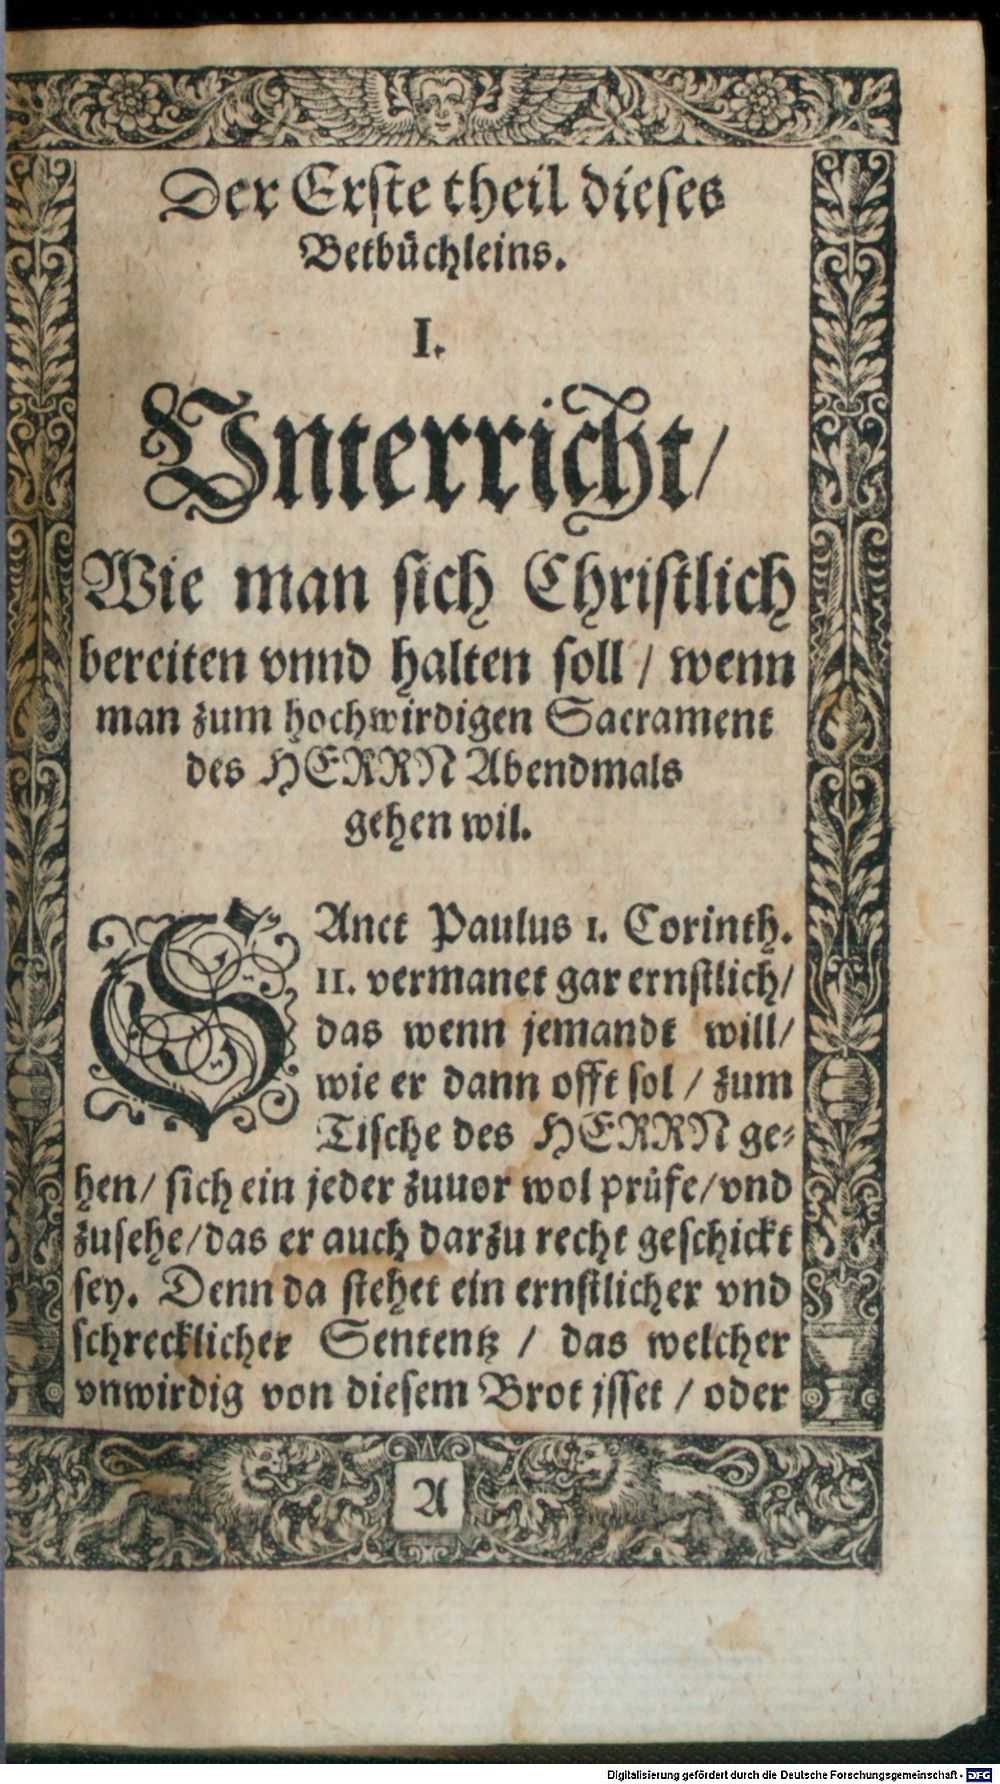 Der Erste theil dieses
Betbüchleins.
I.
Vnterricht/
Wie man sich Christlich
bereiten vnnd halten soll / wenn
man zum hochwirdigen Sacrament
des HERRN Abendmals
gehen wil.
SAnct Paulus 1. Corinth.
11. vermanet gar ernstlich/
das wenn jemandt will/
wie er dann offt sol / zum
Tische des HERRN ge-
hen/ sich ein jeder zuuor wol prüfe/ vnd
zusehe/ das er auch darzu recht geschickt
sey. Denn da stehet ein ernstlicher vnd
schrecklicher Sententz / das welcher
vnwirdig von diesem Brot jsset / oder
A
Digitalisierung gefördert durch die Deutsche Forschungsgemeinschaft - DFG